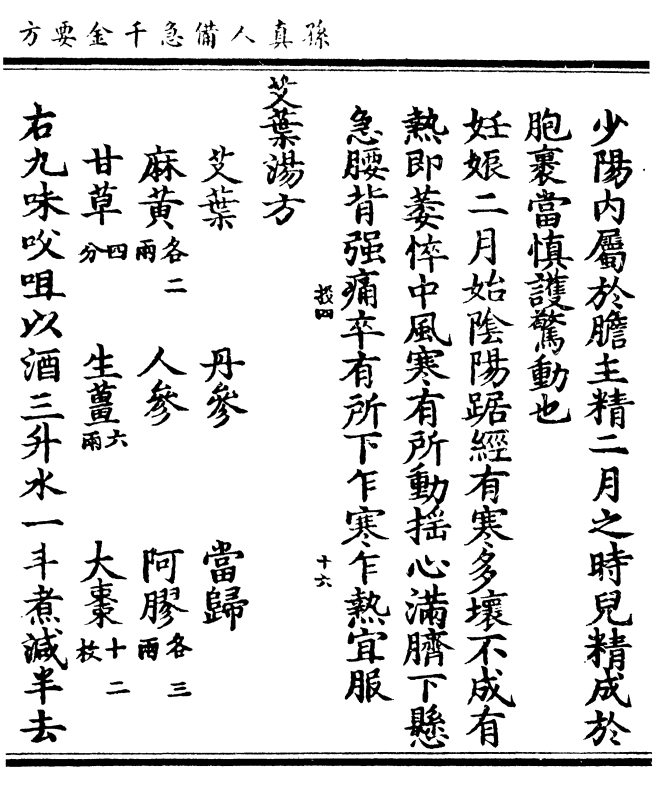 孫真人備急千金要方
少陽内屬於膽主精二月之時兒精成於
胞裏當慎護驚動也
妊娠二月始陰陽踞經有寒多壞不成有
熱即萎悴中風寒有所動揺心滿臍下懸
急腰背强痛卒有所下乍寒乍熱宜服
投四
十六
艾葉湯方
艾葉 丹參 當歸
麻黄各二兩 人參 阿膠各三兩
甘草四分 生薑六兩 大棗十二枚
右九味㕮咀以酒三升水一斗煮減半去